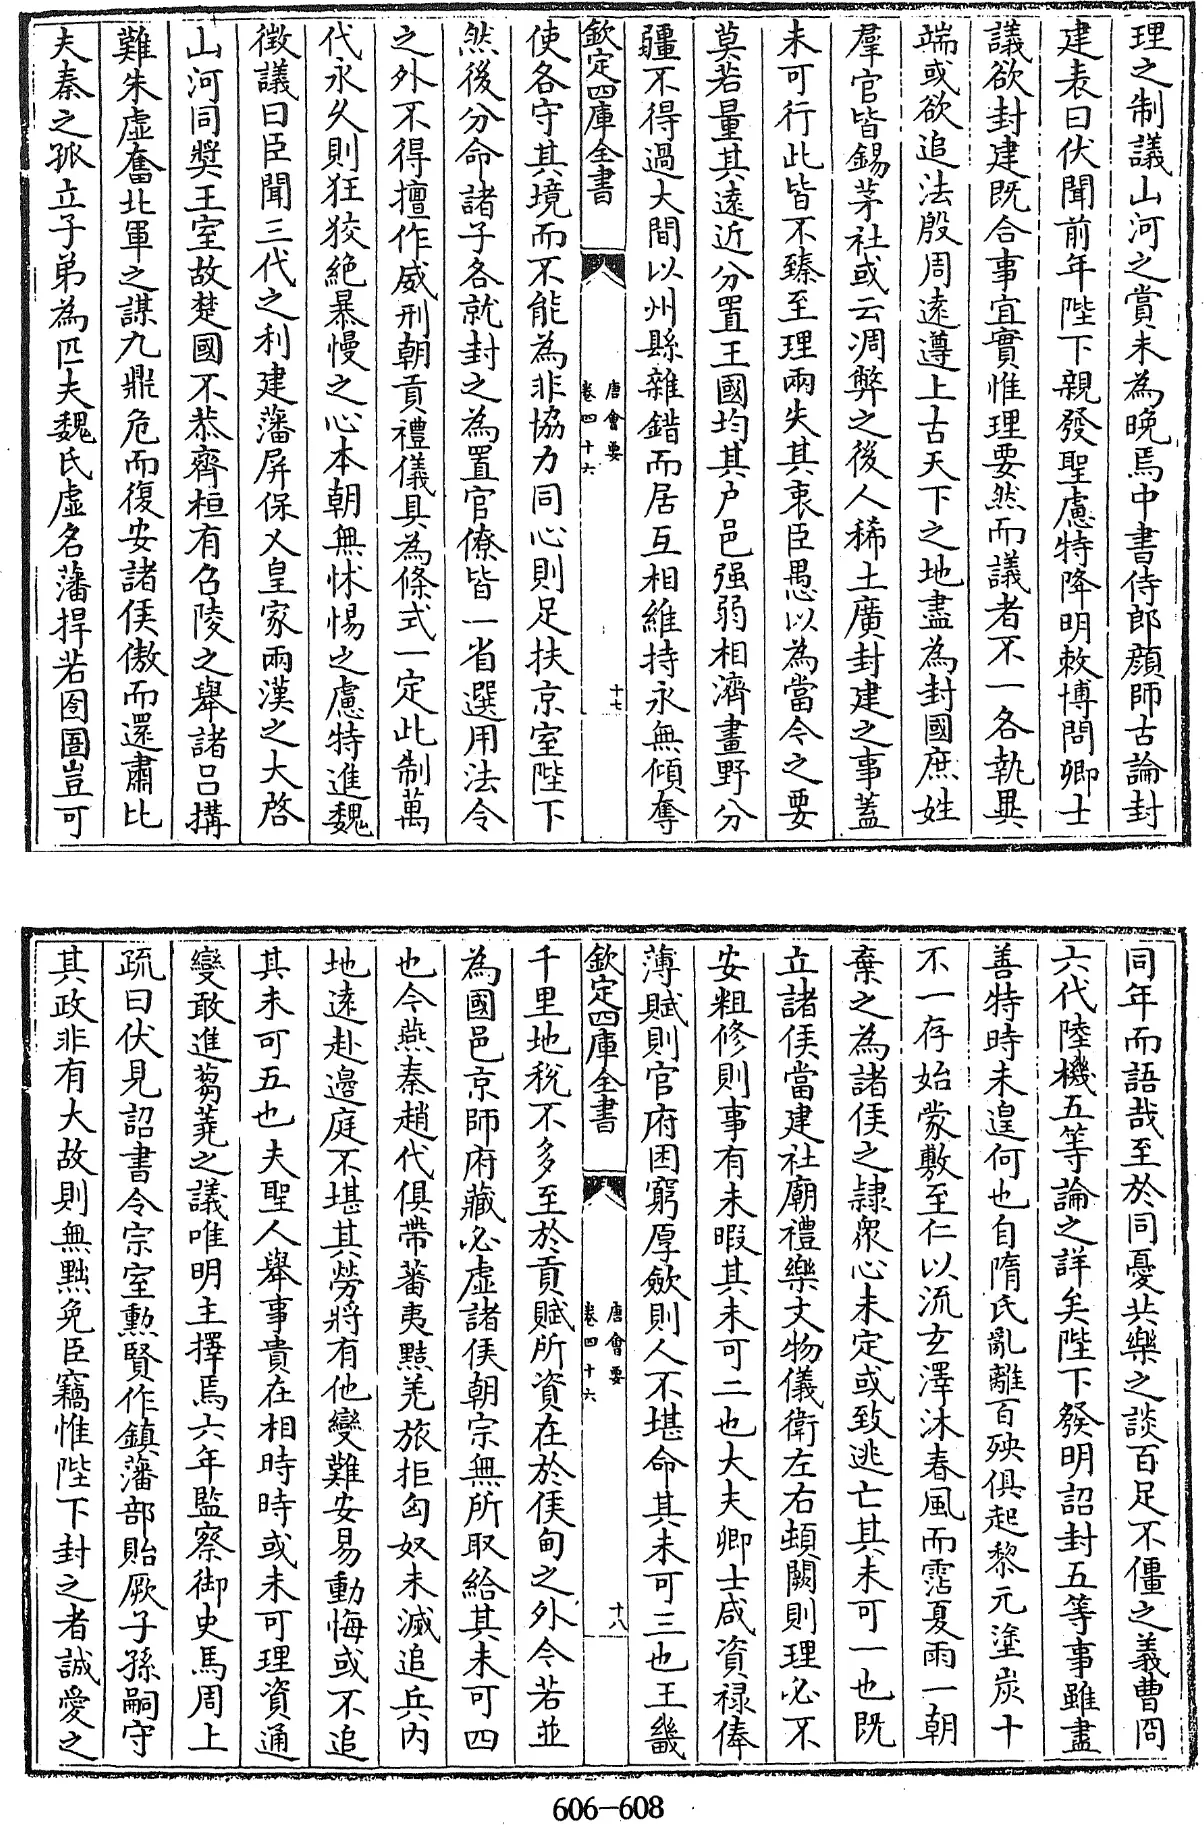 理之制議山河之賞未為晚焉中書侍郎顔師古論封
建表曰伏聞前年陛下親發聖慮特降明敕博問卿士
議欲封建既合事宜實惟理要然而議者不一各執異
端或欲追法殷周遠遵上古天下之地盡為封國庶姓
羣官皆錫茅社或云凋弊之後人稀土廣封建之事蓋
未可行此皆不臻至理兩失其衷臣愚以為當今之要
莫若量其遠近分置王國均其户邑强弱相濟畫野分
疆不得過大間以州縣雜錯而居互相維持永無傾奪
欽定四庫全書
唐會要
卷四十六
十七
使各守其境而不能為非協力同心則足扶京室陛下
然後分命諸子各就封之為置官僚皆一省選用法令
之外不得擅作威刑朝貢禮儀具為條式一定此制萬
代永久則狂狡絶暴慢之心本朝無怵惕之慮特進魏
徴議曰臣聞三代之利建藩屏保乂皇家兩漢之大啓
山河同奬王室故楚國不恭齊桓有召陵之舉諸吕搆
難朱虚奮北軍之謀九鼎危而復安諸侯傲而還肅比
夫秦之孤立子弟為匹夫魏氏虚名藩捍若囹圄豈可
同年而語哉至於同憂共樂之談百足不僵之義曹冏
六代陸機五等論之詳矣陛下發明詔封五等事雖盡
善特時未遑何也自隋氏亂離百殃俱起黎元塗炭十
不一存始蒙敷至仁以流玄澤沐春風而霑夏雨一朝
棄之為諸侯之隷衆心未定或致逃亡其未可一也既
立諸侯當建社廟禮樂文物儀衛左右頓闕則理必不
安粗修則事有未暇其未可二也大夫卿士咸資禄俸
薄賦則官府困窮厚斂則人不堪命其未可三也王畿
欽定四庫全書
唐會要
卷四十六
十八
千里地稅不多至於貢賦所資在於侯甸之外今若並
為國邑京師府藏必虚諸侯朝宗無所取給其未可四
也今燕秦趙代俱帶蕃夷黠羌旅拒匈奴未滅追兵内
地遠赴邊庭不堪其勞將有他變難安易動悔或不追
其未可五也夫聖人舉事貴在相時時或未可理資通
變敢進芻蕘之議唯明主擇焉六年監察御史馬周上
疏曰伏見詔書令宗室勲賢作鎮藩部貽厥子孫嗣守
其政非有大故則無黜免臣竊惟陛下封之者誠愛之
606—608